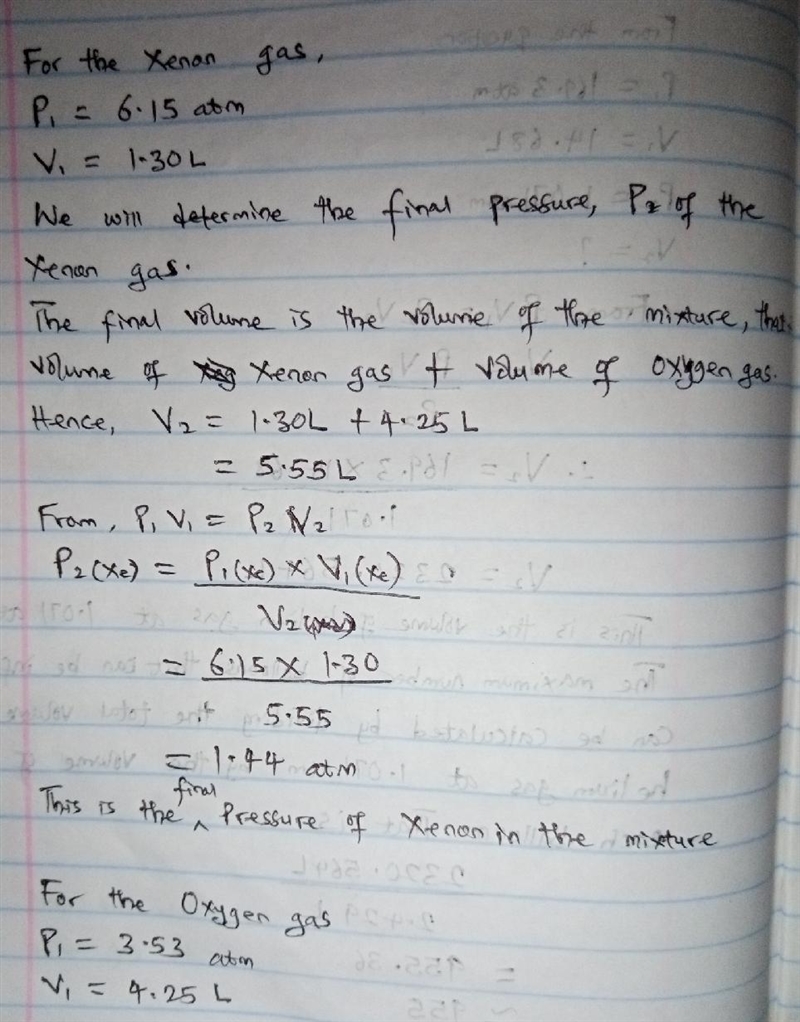 For the Xenon gas,
P₁ = 6.15 atm
V₁ = 1.30 L
We will determine the final pressure, P₂ of the
Xenon gas.
The final volume is the volume of the mixture, that
volume of Xenon gas + volume of oxygen gas.
Hence, V₂ = 1.30L + 4.25 L
= 5.55 L
From, P₁ V₁ = P₂ V₂
P₂(Xe) = P₁(Xe) × V₁(Xe)
V₂
= 6.15 × 1.30
5.55
= 1.44 atm
This is the final pressure of Xenon in the mixture
For the Oxygen gas
P₁ = 3.53 atm
V₁ = 4.25 L